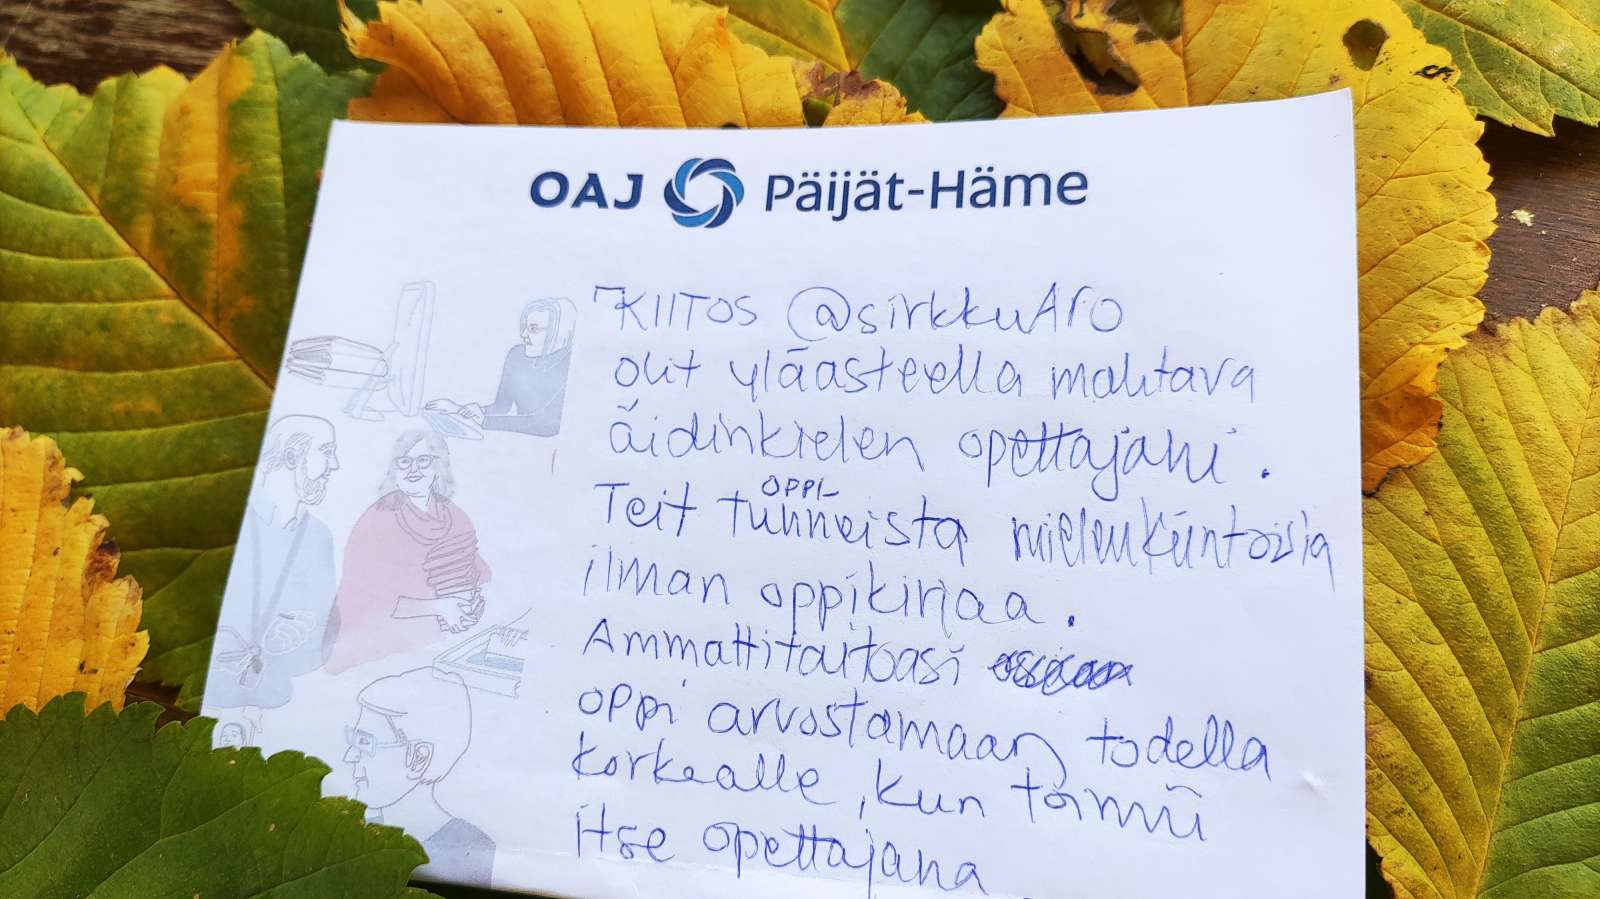 OAJ Päijät-Häme
KIITOS @sirkkuAro
olit yläasteella mahtava
äidinkielen opettajani.
Teit oppi-tunneista mielenkiintoisia
ilman oppikirjaa.
Ammattitaitoasi
oppi arvostamaan todella
korkealle, kun toimii
itse opettajana